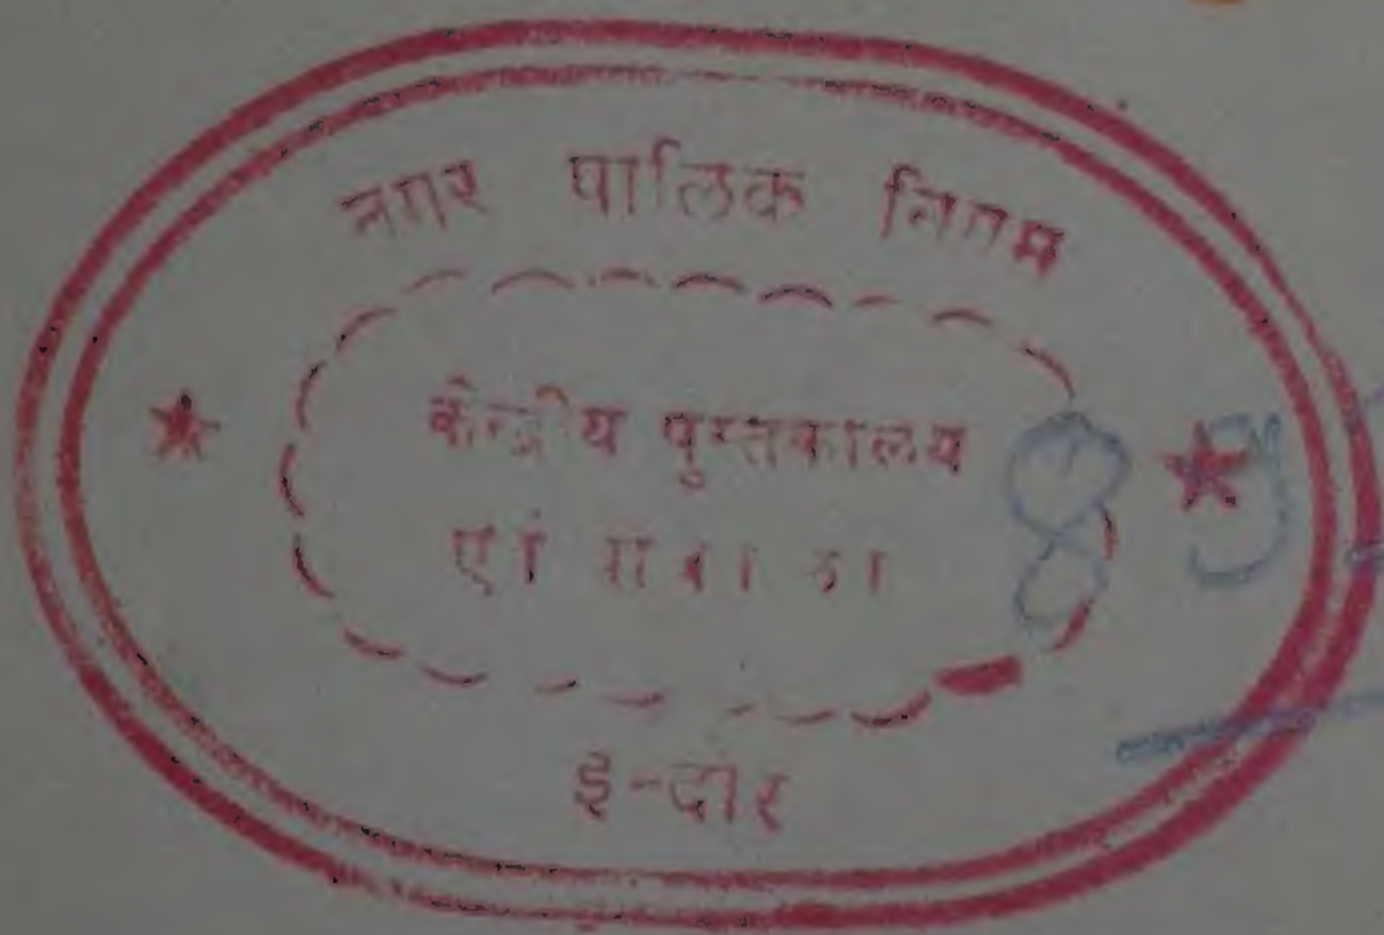 नगर पालिक निगम
केन्द्रीय पुस्तकालय
एवं
इन्दौर